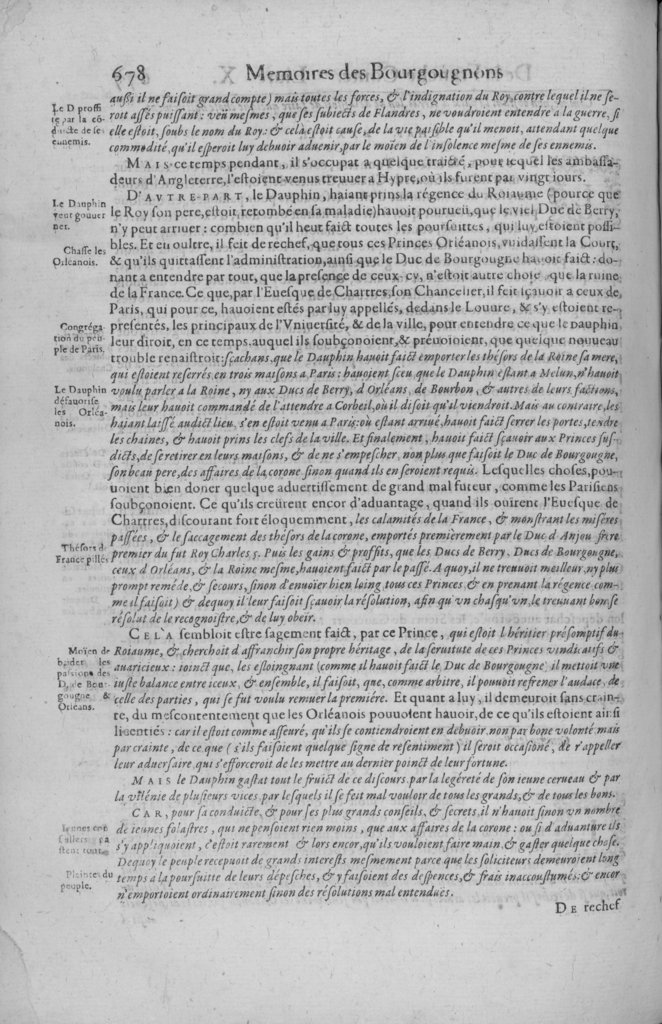 678 Memoires des Bourgougnons
außi il ne faisoit grand compte) mais toutes les forces, & l'indignation du Roy, contre lequel il ne se-
roit assés puissant: veu mesmes, que ses subiects de Flandres, ne voudroient entendre a la guerre, si
elle estoit, soubs le nom du Roy: & cela estoit cause, de la vie paisible qu'il menoit, attendant quelque
commodité, qu'il esperoit luy debuoir aduenir, par le moien de l'insolence mesme de ses ennemis.
Le D proffi
te par la cō
duicte de ses
ennemis.
MAIS ce temps pendant, il s'occupat a quelque traicté, pour lequel les ambassa-
deurs d'Angleterre, l'estoient venus treuuer a Hypre, où ils furent par vingt iours.
D'AVTRE-PART, le Dauphin, haiant prins la régence du Roiaume (pource que
le Roy son pere, estoit retombé en sa maladie) hauoit pourueü, que le viel Duc de Berry,
n'y peut arriuer: combien qu'il heut faict toutes les poursuittes, qui luy estoient possi-
bles. Et en oultre, il feit de rechef, que tous ces Princes Orléanois, vuidassent la Court,
& qu'ils quittassent l'administration, ainsi que le Duc de Bourgougne hauoit faict: do-
nant a entendre par tout, que la presence de ceux-cy, n'estoit autre chose, que la ruine
de la France. Ce que, par l'Euesque de Chartres, son Chancelier, il feit sçauoir a ceux de
Paris, qui pour ce, hauoient estés par luy appellés, dedans le Louure, & s'y estoient re-
presentés, les principaux de l'Vniuersité, & de la ville, pour entendre ce que le Dauphin
leur diroit, en ce temps, auquel ils soubçonoient, & préuoioient, que quelque nouueau
trouble renaistroit: sçachans, que le Dauphin hauoit faict emporter les thésors de la Reine sa mere,
qui estoient reserrés, en trois maisons a Paris: hauoient sceu que le Dauphin estant a Melun, n'hauoit
voulu parler a la Roine, ny aux Ducs de Berry, d'Orléans, de Bourbon, & autres de leurs factions,
mais leur hauoit commandé de l'attendre a Corbeil, où il disoit qu'il viendroit. Mais au contraire, les
haiant laissé audict lieu, s'en estoit venu a Paris: où estant arriué, hauoit faict serrer les portes, tendre
les chaines, & hauoit prins les clefs de la ville. Et finalement, hauoit faict sçauoir aux Princes sus-
dicts, de se retirer en leurs maisons, & de ne s'empescher, non plus que faisoit le Duc de Bourgougne,
son beau pere, des affaires de la corone sinon quand ils en seroient requis. Lesquelles choses, pou-
uoient bien doner quelque aduertissement de grand mal futeur, comme les Parisiens
soubçonoient. Ce qu'ils creürent encor d'aduantage, quand ils ouirent l'Euesque de
Chartres, discourant fort éloquemment, les calamités de la France, & monstrant les misères
passées, & le saccagement des thésors de la corone, emportés premièrement par le Duc d'Anjou frère
premier du fut Roy Charles 5. Puis les gains & proffits, que les Ducs de Berry, Ducs de Bourgougne,
ceux d'Orléans, & la Roine mesme, hauoient faict par le passé. A quoy, il ne treuuoit meilleur, ny plus
prompt reméde, & secours, sinon d'enuoier bien loing tous ces Princes (& en prenant la régence com-
me il faisoit) & dequoy il leur faisoit sçauoir la résolution, afin qu'vn chasqu'vn, le treuuant bon se
résolut de le recognoistre, & de luy obeir.
Le Dauphin
veut gouuer
ner.
Chasse les
Orléanois.
Congréga-
tion du peu-
ple de Paris.
Le Dauphin
défauorise
les Orléa-
nois.
Thésors de
France pillés
CELA sembloit estre sagement faict, par ce Prince, qui estoit l'héritier présomptif du
Roiaume, & cherchoit d'affranchir son propre héritage, de la seruitute de ces Princes vindicatifs &
auaricieux: ioinct que, les esloingnant (comme il hauoit faict le Duc de Bourgougne) il mettoit vne
iuste balance entre iceux, & ensemble, il faisoit, que, comme arbitre, il pouuoit refrener l'audace, de
celle des parties, qui se fut voulu remuer la première. Et quant a luy, il demeuroit sans crain-
te, du mescontentement que les Orléanois pouuoient hauoir, de ce qu'ils estoient ainsi
licentiés: car il estoit comme asseuré, qu'ils se contiendroient en debuoir, non par bone volonté mais
par crainte, de ce que (s'ils faisoient quelque signe de resentiment) il seroit occasioné, de r'appeller
leur aduersaire, qui s'efforceroit de les mettre au dernier poinct de leur fortune.
Moïen de
brider les
passions des
D. de Bour
gougne &
Orléans.
MAIS le Dauphin gastat tout le fruict de ce discours, par la legéreté de son ieune cerueau & par
la vilénie de plusieurs vices, par lesquels il se feit mal vouloir de tous les grands, & de tous les bons.
CAR, pour sa conduicte, & pour ses plus grands conseils, & secrets, il n'hauoit sinon vn nombre
de ieunes folastres, qui ne pensoient rien moins, que aux affaires de la corone: ou si d'aduanture ils
s'y appliquoient, c'estoit rarement & lors encor, qu'ils vouloient faire main, & gaster quelque chose.
Dequoy le peuple receuoit de grands interests mesmement parce que les soliciteurs demeuroient long
temps a la poursuitte de leurs dépesches, & y faisoient des despences, & frais inaccoustumés: & encor
n'emportoient ordinairement sinon des résolutions mal entendues.
Ieunes con
seillers ga
stent tout.
Plaintes du
peuple.
DE rechef